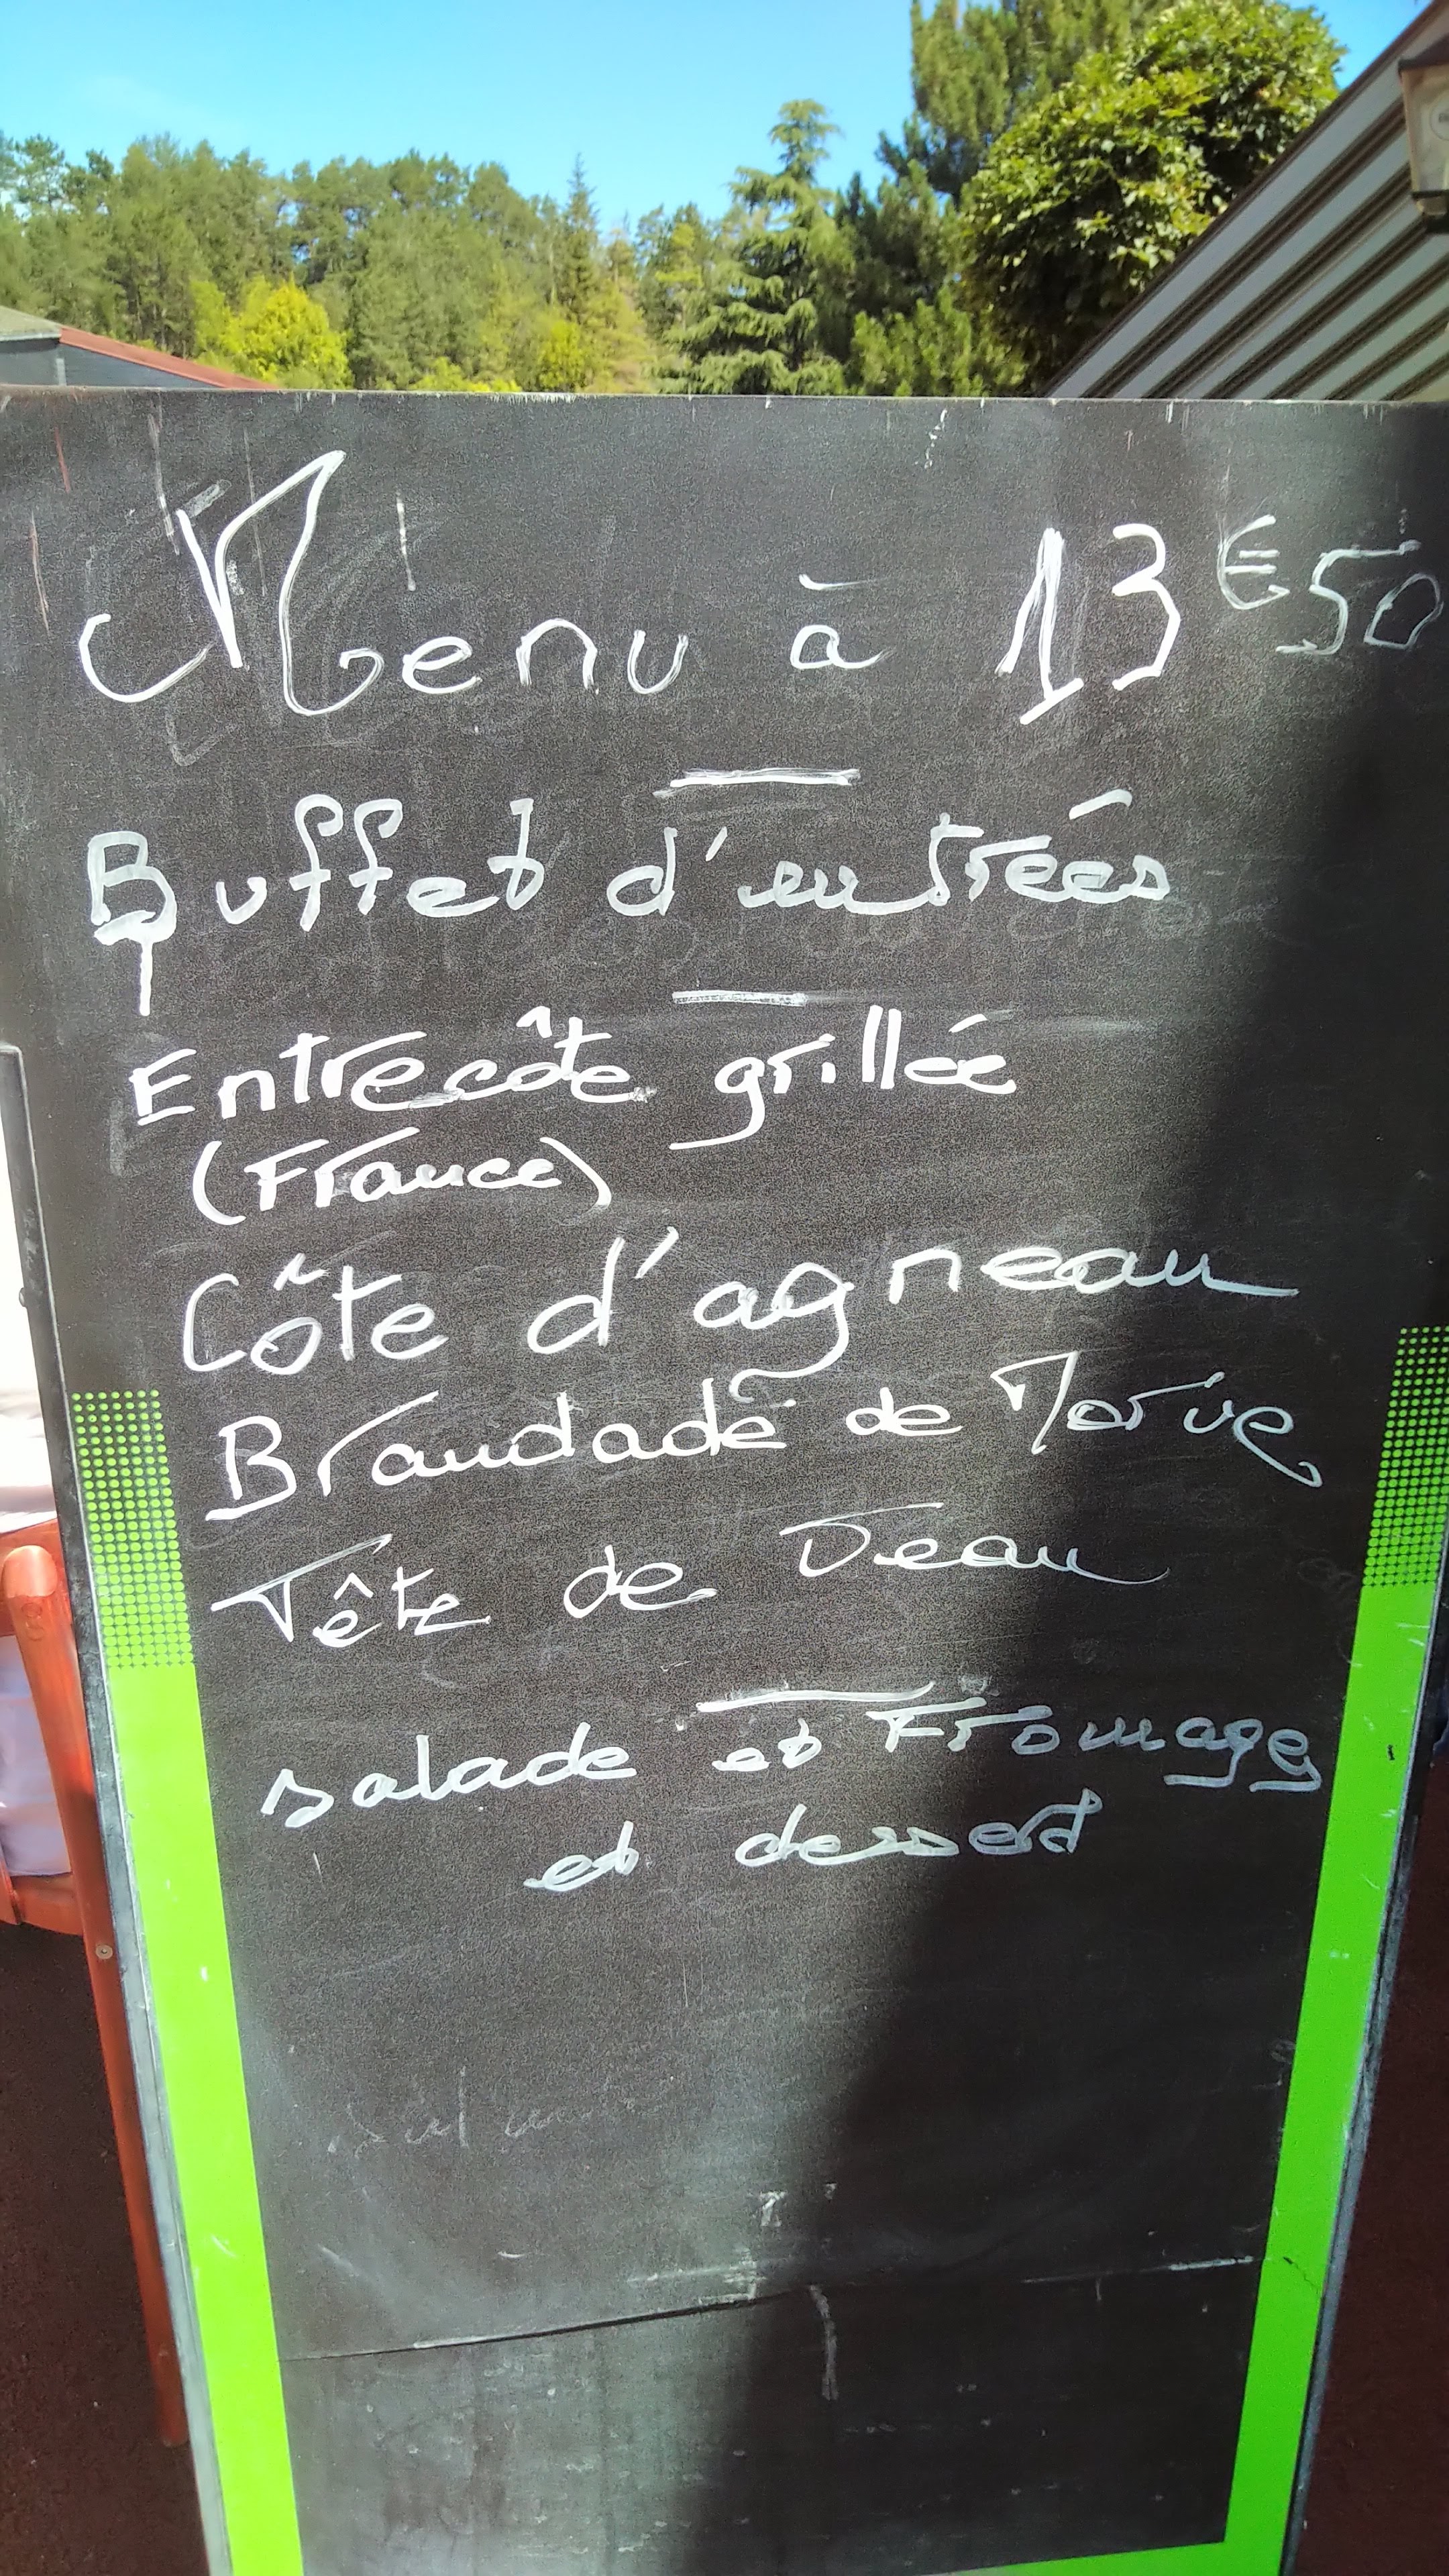 Menu à 13€50
Buffet d'entrées
Entrecôte grillée
(France)
Côte d'agneau
Brandade de Morue
Tête de Veau
salade et Fromage
et dessert